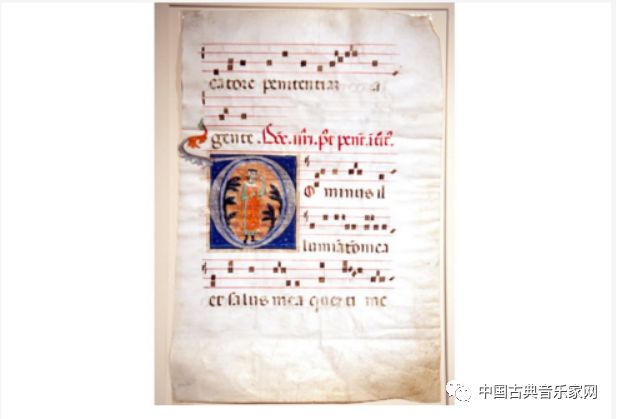 catore penitentiam a
gente. Dōc. iiii. pꝰt pent. ītit.
Dominus il
lumīatō mea
et salus mea quem ti me
中国古典音乐家网